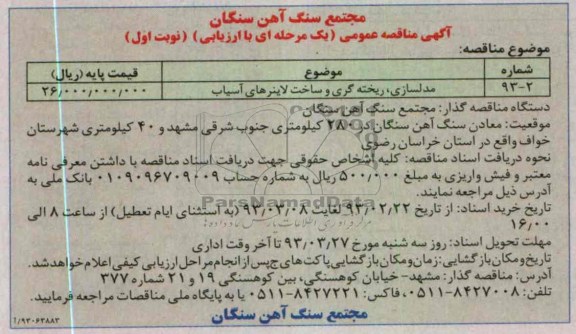 مجتمع سنگ آهن سنگان
آگهی مناقصه عمومی (یک مرحله ای با ارزیابی) (نوبت اول)
موضوع مناقصه:
شماره موضوع قیمت پایه (ریال)
۹۳-۲ مدلسازی، ریخته گری و ساخت لاینرهای آسیاب ۲۶/۰۰۰/۰۰۰/۰۰۰
دستگاه مناقصه گذار: مجتمع سنگ آهن سنگان
موقعیت: معادن سنگ آهن سنگان در ۲۸۰ کیلومتری جنوب شرقی مشهد و ۴۰ کیلومتری شهرستان
خواف واقع در استان خراسان رضوی
نحوه دریافت اسناد مناقصه: کلیه اشخاص حقوقی جهت دریافت اسناد مناقصه با داشتن معرفی نامه
معتبر و فیش واریزی به مبلغ ۵۰۰/۰۰۰ ریال به شماره حساب ۰۱۰۹۰۹۶۷۰۹۰۰۹ بانک ملی به
آدرس ذیل مراجعه نمایند.
تاریخ خرید اسناد: از تاریخ ۹۳/۰۲/۲۲ لغایت ۹۳/۰۳/۰۸ (به استثنای ایام تعطیل) از ساعت ۸ الی
۱۶/۰۰
مهلت تحویل اسناد: روز سه شنبه مورخ ۹۳/۰۳/۲۷ تا آخر وقت اداری
تاریخ و مکان بازگشایی: زمان و مکان بازگشایی پاکت های ج پس از انجام مراحل ارزیابی کیفی اعلام خواهد شد.
آدرس: مناقصه گذار: مشهد- خیابان کوهسنگی، بین کوهسنگی ۱۹ و ۲۱ شماره ۳۷۷
تلفن: ۸۴۲۷۰۰۸-۰۵۱۱، فاکس: ۸۴۲۷۲۲۱-۰۵۱۱ یا به پایگاه ملی مناقصات مراجعه فرمایید.
مجتمع سنگ آهن سنگان
۹۳۰۶۲۸۸۳/آ
ParsNamadData